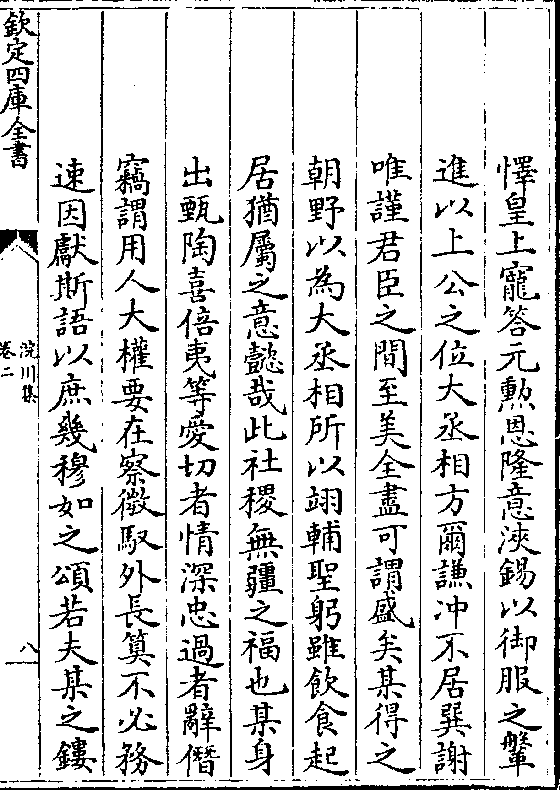 懌皇上寵答元勲恩隆意浹錫以御服之鞶
進以上公之位大丞相方爾謙冲不居巽謝
唯謹君臣之間至美全盡可謂盛矣某得之
朝野以為大丞相所以翊輔聖躬雖飲食起
居猶屬之意懿哉此社稷無疆之福也某身
出甄陶喜倍夷等愛切者情深忠過者辭僭
竊謂用人大權要在察微馭外長算不必務
速因獻斯語以庶幾穆如之頌若夫某之鏤
欽定四庫全書
浣川集
卷二
八